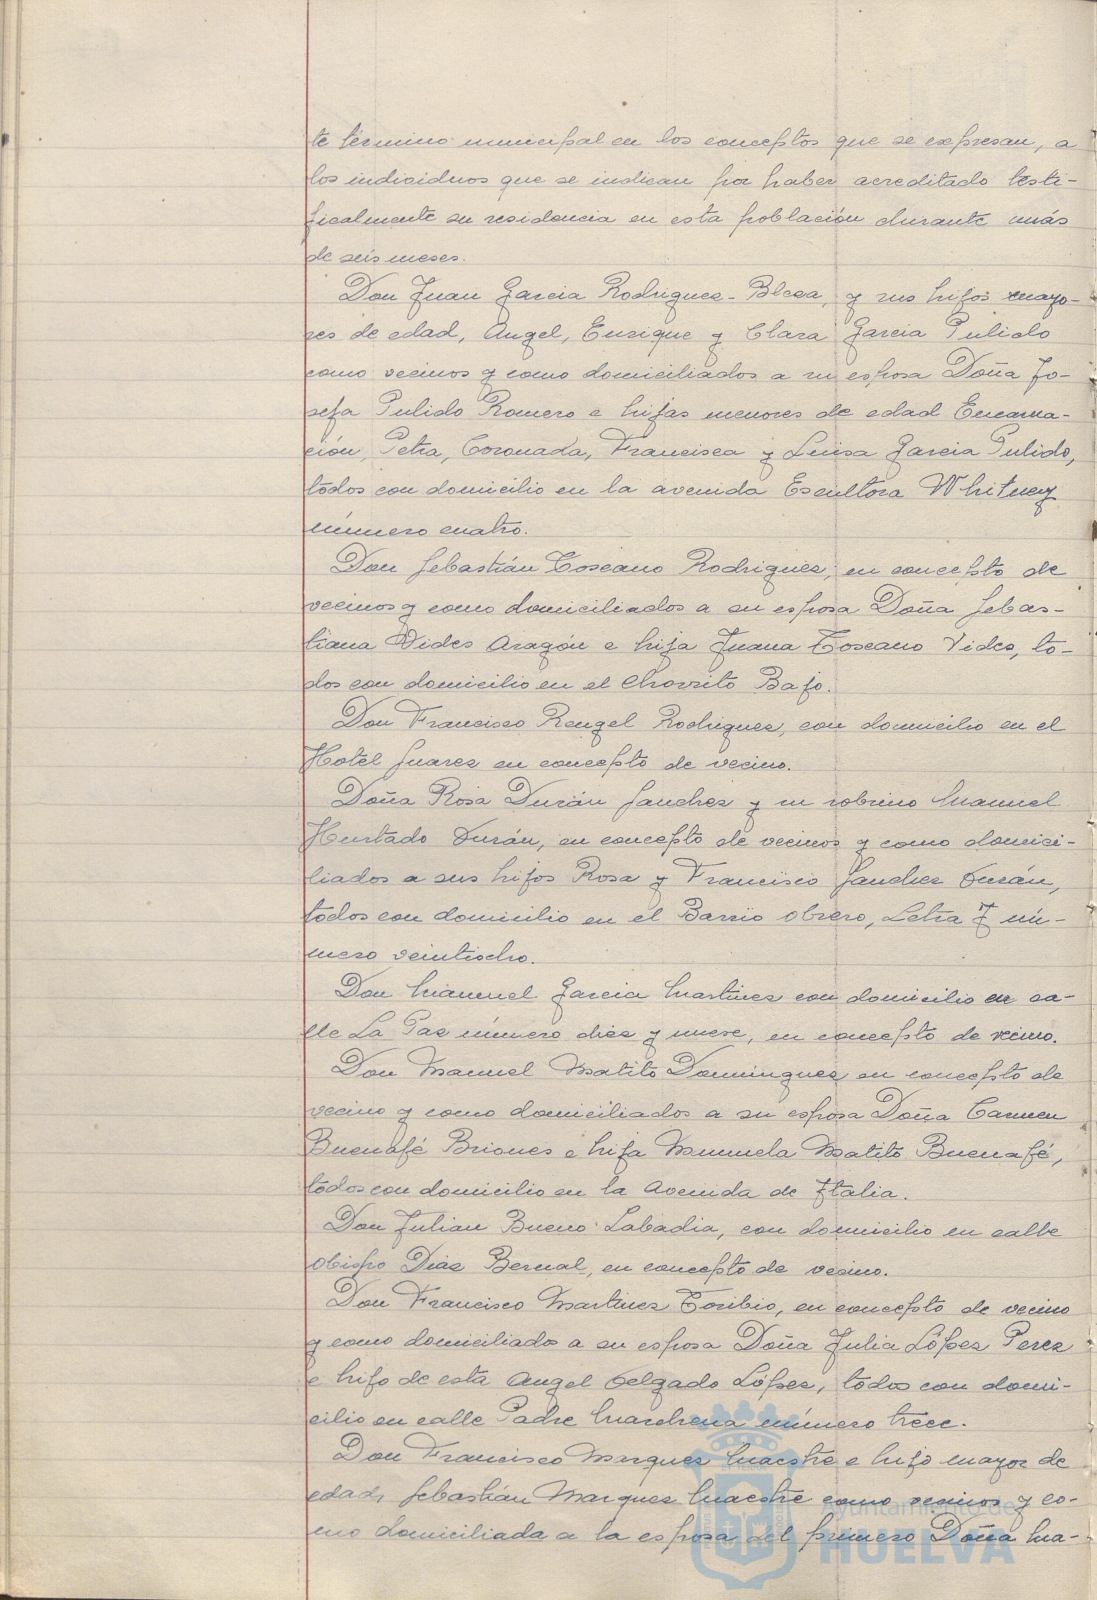 te término municipal en los conceptos que se expresan, a
los individuos que se indican por haber acreditado testi-
ficalmente su residencia en esta población durante más
de seis meses.
Don Juan Garcia Rodriguez-Blesa, y sus hijos mayo-
res de edad, Angel, Enrique y Clara Garcia Pulido
como vecinos y como domiciliados a su esposa Doña Jo-
sefa Pulido Romero e hijas menores de edad Encarna-
ción, Petra, Coronada, Francisca y Luisa Garcia Pulido,
todos con domicilio en la avenida Escultora Whitney
número cuatro.
Don Sebastián Toscano Rodriguez, en concepto de
vecinos y como domiciliados a su esposa Doña Sebas-
tiana Vides Aragón e hija Juana Toscano Vides, to-
dos con domicilio en el Chorrito Bajo.
Don Francisco Rengel Rodriguez, con domicilio en el
Hotel Juarez en concepto de vecino.
Doña Rosa Durán Sanchez y su sobrino Manuel
Hurtado Durán, en concepto de vecinos y como domici-
liados a sus hijos Rosa y Francisco Sanchez Durán,
todos con domicilio en el Barrio obrero, Letra J nú-
mero veintiocho.
Don Manuel Garcia Martinez con domicilio en ca-
lle La Paz número diez y nueve, en concepto de vecino.
Don Manuel Matito Dominguez en concepto de
vecino y como domiciliados a su esposa Doña Carmen
Buenafé Briones e hija Manuela Matito Buenafé,
todos con domicilio en la Avenida de Italia.
Don Julian Bueno Labadia, con domicilio en calle
Obispo Diaz Bernal, en concepto de vecino.
Don Francisco Martinez Toribio, en concepto de vecino
y como domiciliado a su esposa Doña Julia López Perez
e hijo de esta Angel Delgado López, todos con domi-
cilio en calle Padre Marchena número trece.
Don Francisco Marquez Maestre e hijo mayor de
edad, Sebastián Marquez Maestre como vecinos y co-
mo domiciliada a la esposa del primero Doña Ma-
Ayuntamiento de
HUELVA